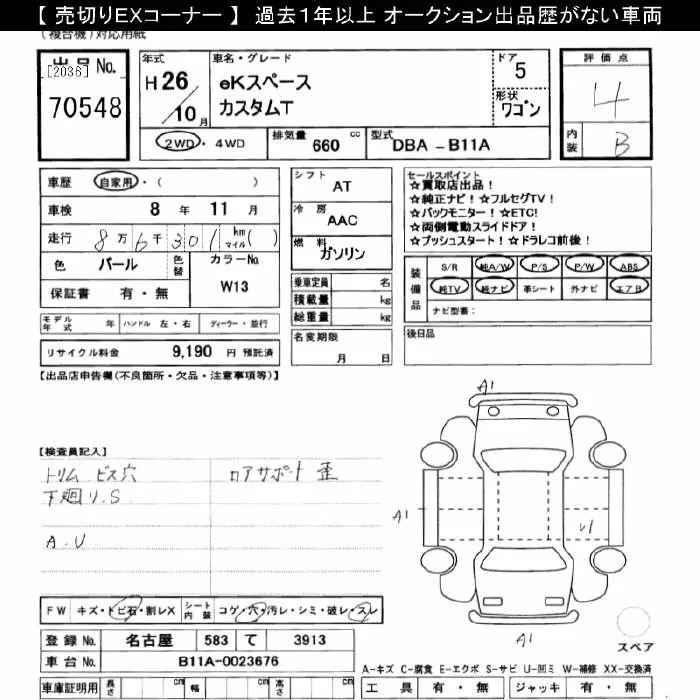 【 売切りEXコーナー 】 過去1年以上 オークション出品歴がない車両
(複合機)対応用紙
出品No.
[2036]
70548
年式
H 26
/10月
車名・グレード
eKスペース
カスタムT
ドア
5
形状
ワゴン
評価点
4
内装
B
2WD・4WD
排気量 660 cc
型式 DBA -B11A
車歴 自家用・( )
車検 8 年 11 月
走行 8万6千301 km マイル( )
色 パール 色替 カラーNo. W13
保証書 有・無
シフト AT
冷房 AAC
燃料 ガソリン
乗車定員 名
積載量 kg
総重量 kg
セールスポイント
☆買取店出品!
☆純正ナビ!☆フルセグTV!
☆バックモニター!☆ETC!
☆両側電動スライドドア!
☆プッシュスタート!☆ドラレコ前後!
装備品
S/R 純A/W P/S P/W ABS
純TV 純ナビ 革シート 外ナビ エアB
ナビ型番:
モデル年式 年 ハンドル 左・右 ディーラー・並行
リサイクル料金 9,190 円 預託済
名変期限
月 日
後日品
【出品店申告欄(不良箇所・欠品・注意事項等)】
【検査員記入】
トリム ビス穴 ロアサポート 歪
下廻り.S
A.U
A1
A1
U1
A1
FW キズ・トビ石・割レX シート内装 コゲ・穴・汚レ・シミ・破レ・スレ
登録No. 名古屋 583 て 3913
車台No. B11A-0023676
車庫証明用 長さ cm 幅 cm 高さ cm
スペア
A-キズ C-腐食 E-エクボ S-サビ U-凹ミ W-補修 XX-交換済
工具 有・無 ジャッキ 有・無